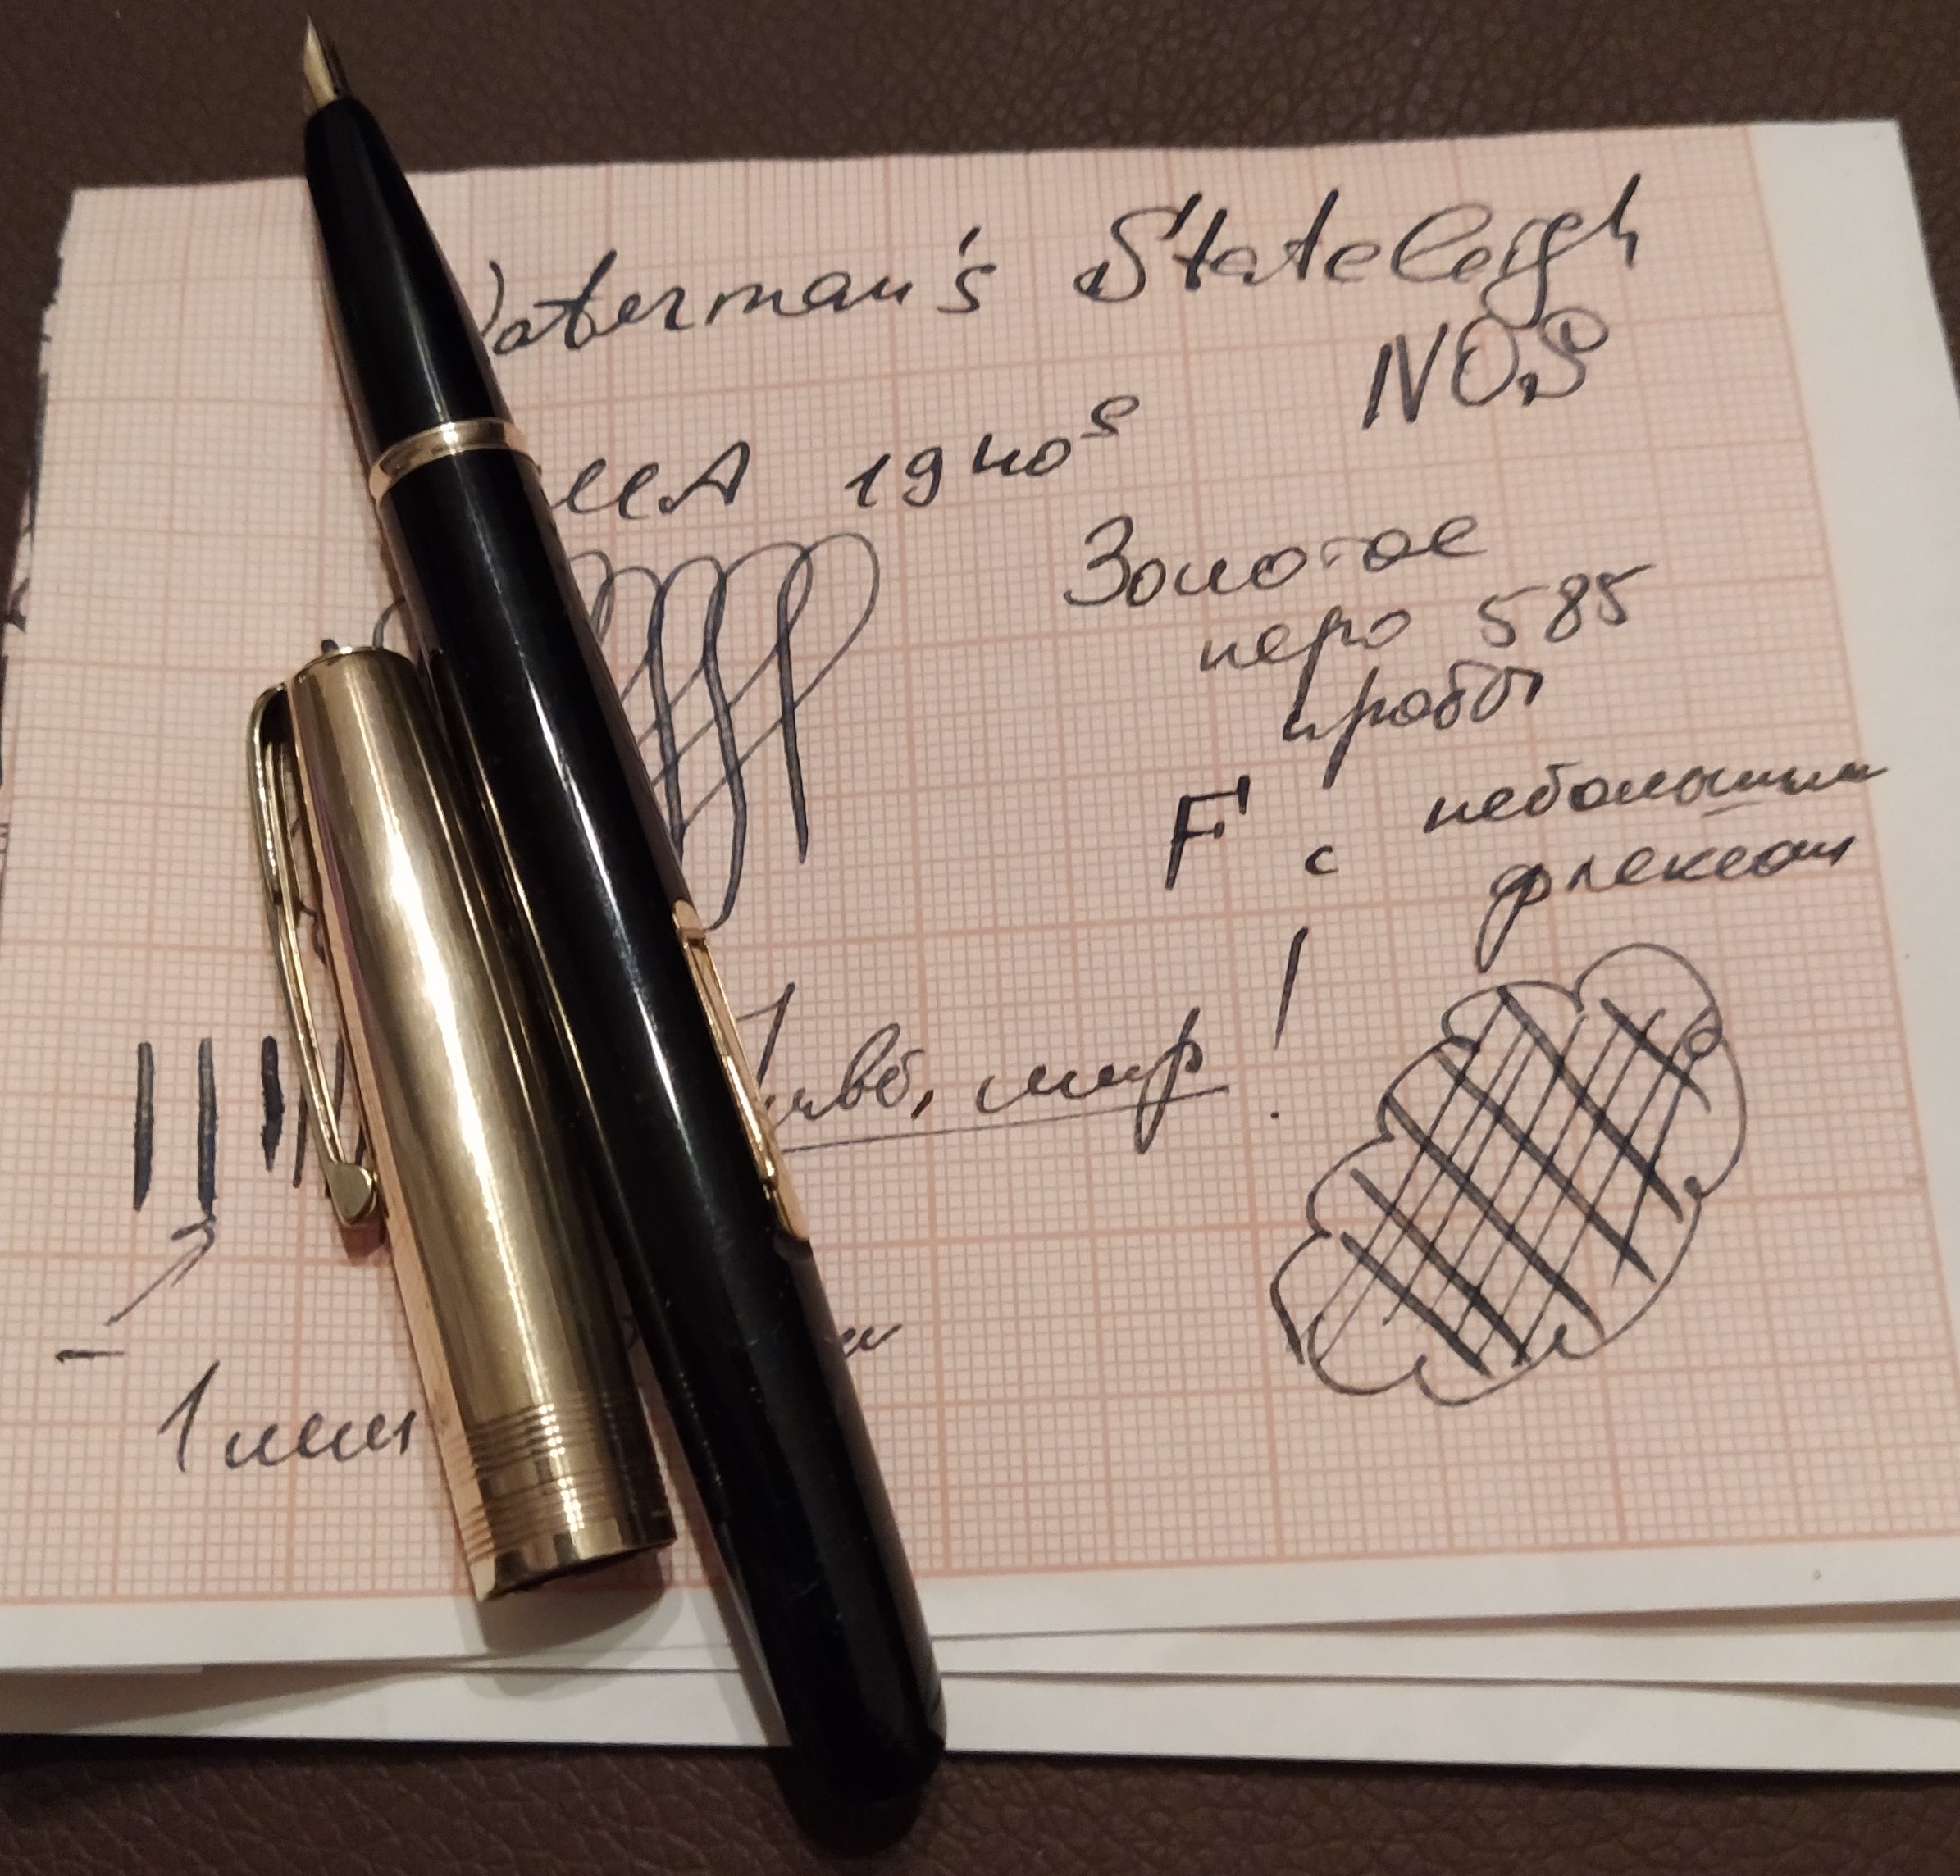 Waterman's Stateleigh
NOS
США 1940s
Золотое
перо 585
пробы
F с небольшим
флексом
Привет, мир!
1 мм